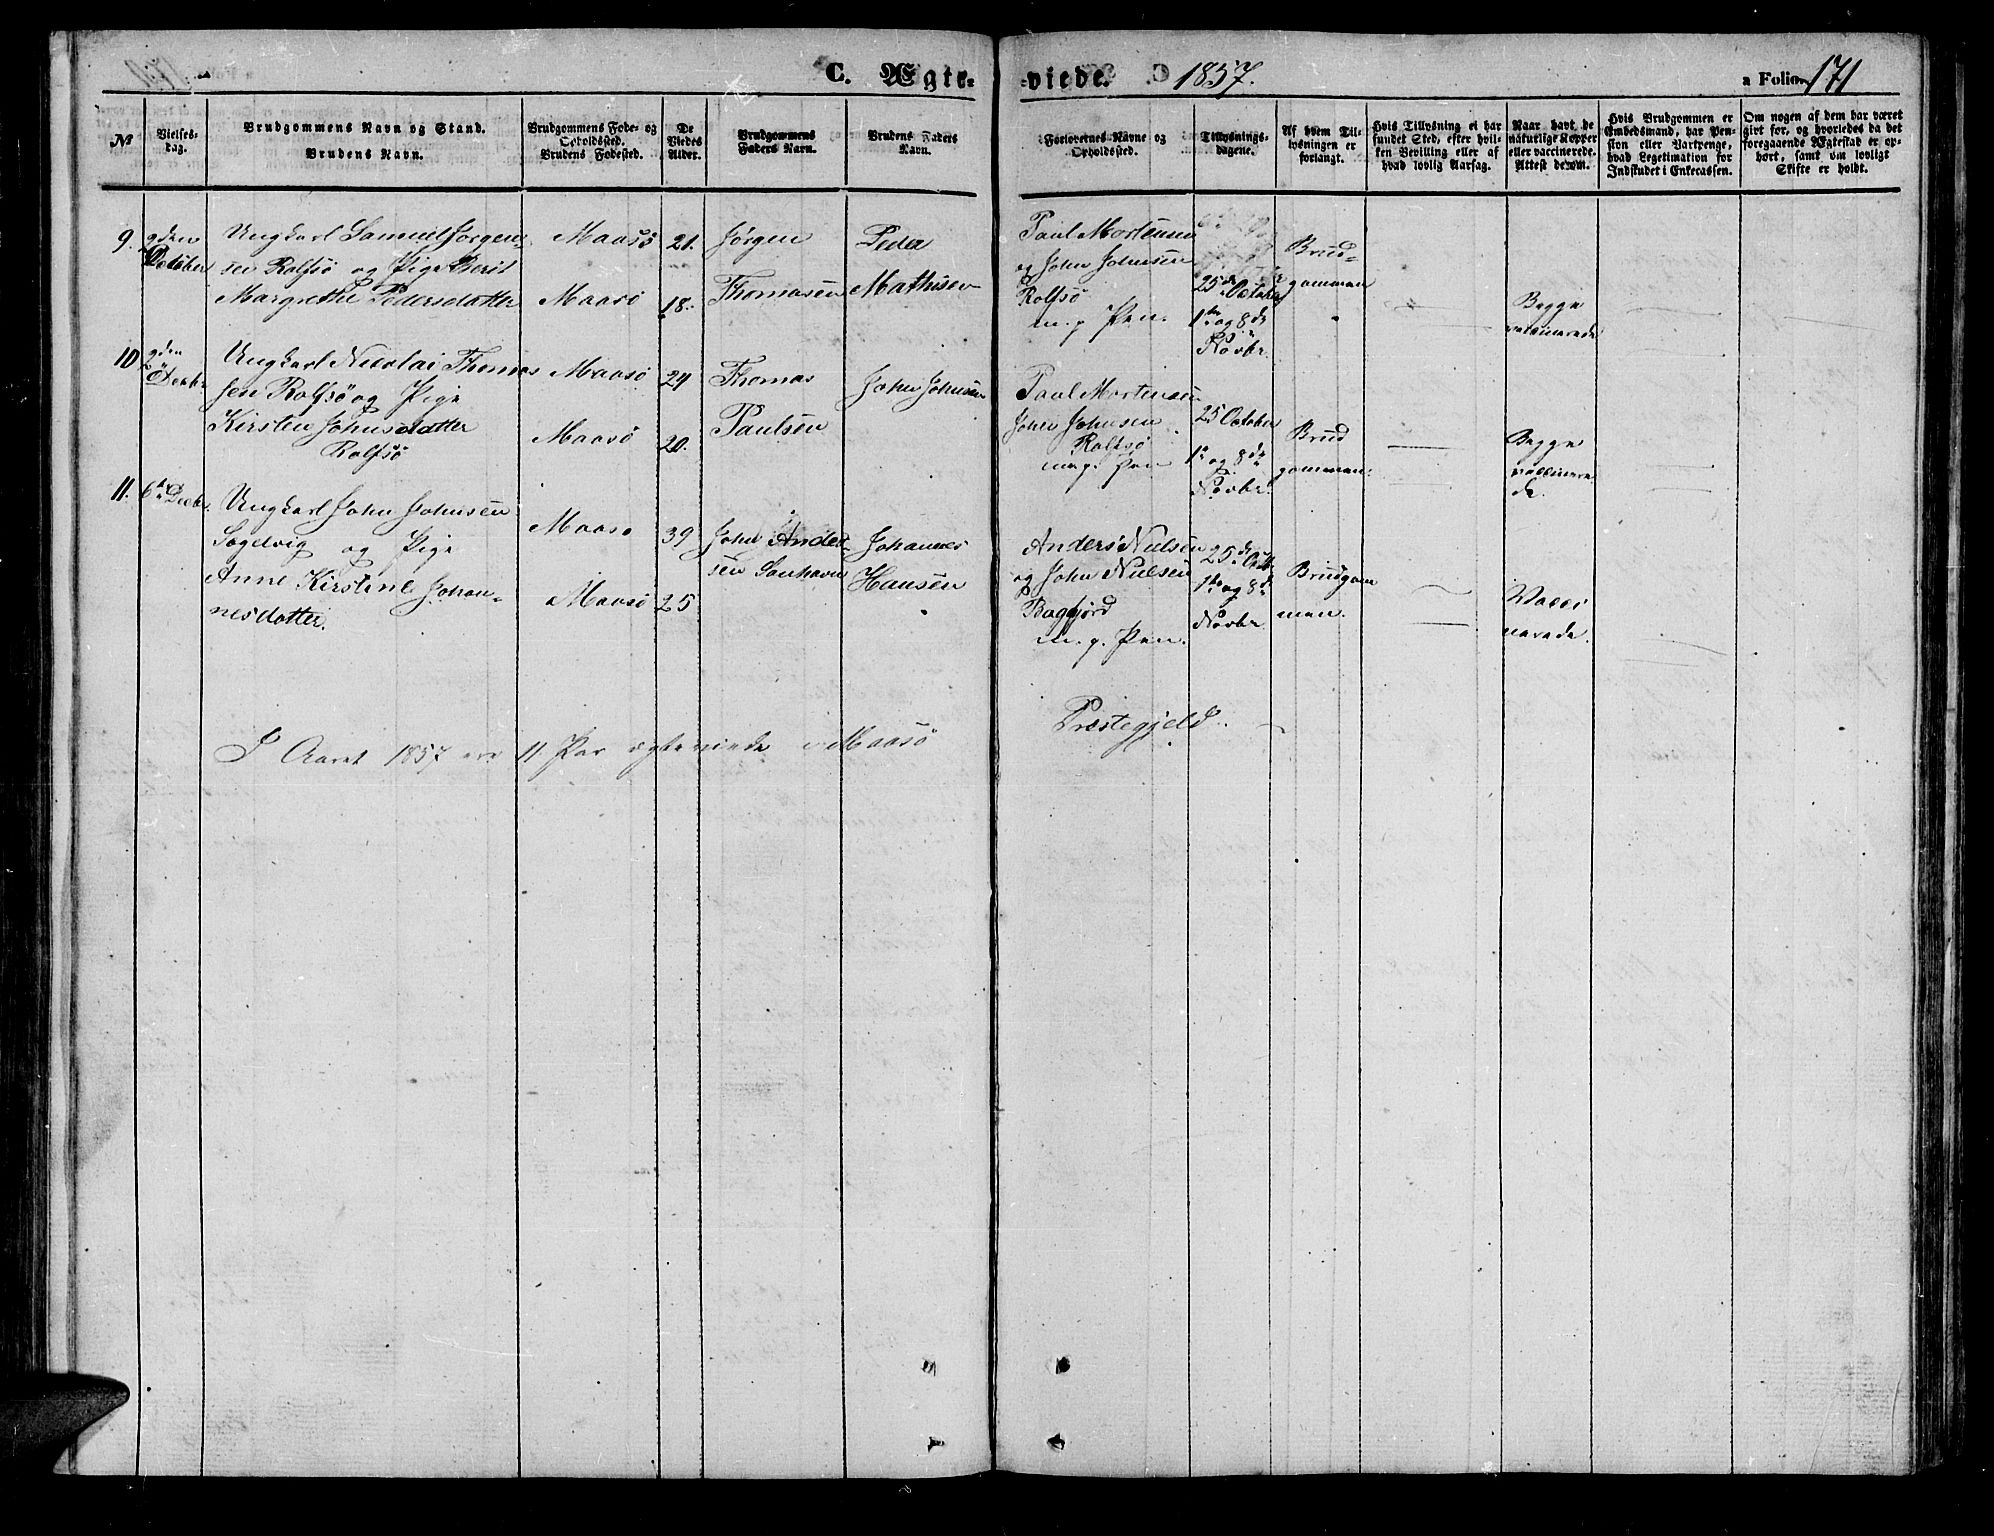 C. Ægte-
-viede. 1857.
a Folio. 171
№
Vielses-
dag.
Brudgommens Navn og Stand.
Brudens Navn.
Brudgommens Føde- og
Opholdssted.
Brudens Fødested.
De
Viedes
Alder.
Brudgommens
Faders Navn.
Brudens Faders
Navn.
Forlovernes Navne og
Opholdssted.
Tillysnings-
dagene.
Af hvem Til-
lysningen er
forlangt.
Hvis Tillysning ei har
fundet Sted, efter hvil-
ken Bevilling eller af
hvad lovlig Aarsag.
Naar havt de
naturlige Kopper
eller vaccinerede.
Attest derom.
Hvis Brudgommen er
Embedsmand, har Pen-
sion eller Vartpenge,
hvad Legetimation for
Indskudet i Enkecassen.
Om nogen af dem har været
givt for, og hvorledes da det
foregaaende Ægteskab er op-
hørt, samt om lovligt
Skifte er holdt.
9.
9den
October
Ungkarl Samuel Jørgen-
sen Rolfsø og Pige Berit
Margrethe Pedersdatter
Maasø
Maasø
21.
18.
Jørgen
Thomasen
Peder
Mathisen
Paul Mortensen
og John Johnsen
Rolfsø
m. p. Pen.
25de October
1ste og 8de
Novbr
Brud-
gommen
Begge
vaccinerede
10
Ungkarl Nicolai Thomas
sen Rolfsø og Pige
Kirsten Johnsdatter
Rolfsø
Maasø
Maasø
24
20.
Thomas
Paulsen
John Johnsen
Paul Mortensen
John Johnsen
Rolfsø
m. p. Pen
25 October
1te og 8de
Novbr.
Brud
gommen.
Begge
vaccinere
de.
11.
6te Decbr.
Ungkarl John Johnsen
Sagdvig og Pige
Anne Kirstine Johan-
nesdatter.
Maasø
Maasø
39
25
John Ander-
sen Sanhavn
Johannes
Hansen
Anders Nielsen
og John Nielsen
Bagfjord
m. p. Pen.
25de Octb.
1te og 8de
Novbr
Brudgom
men.
Vacci
nerede.
I Aaret 1857 ere 11 Par ægteviede i Maasø
Præstegjeld.